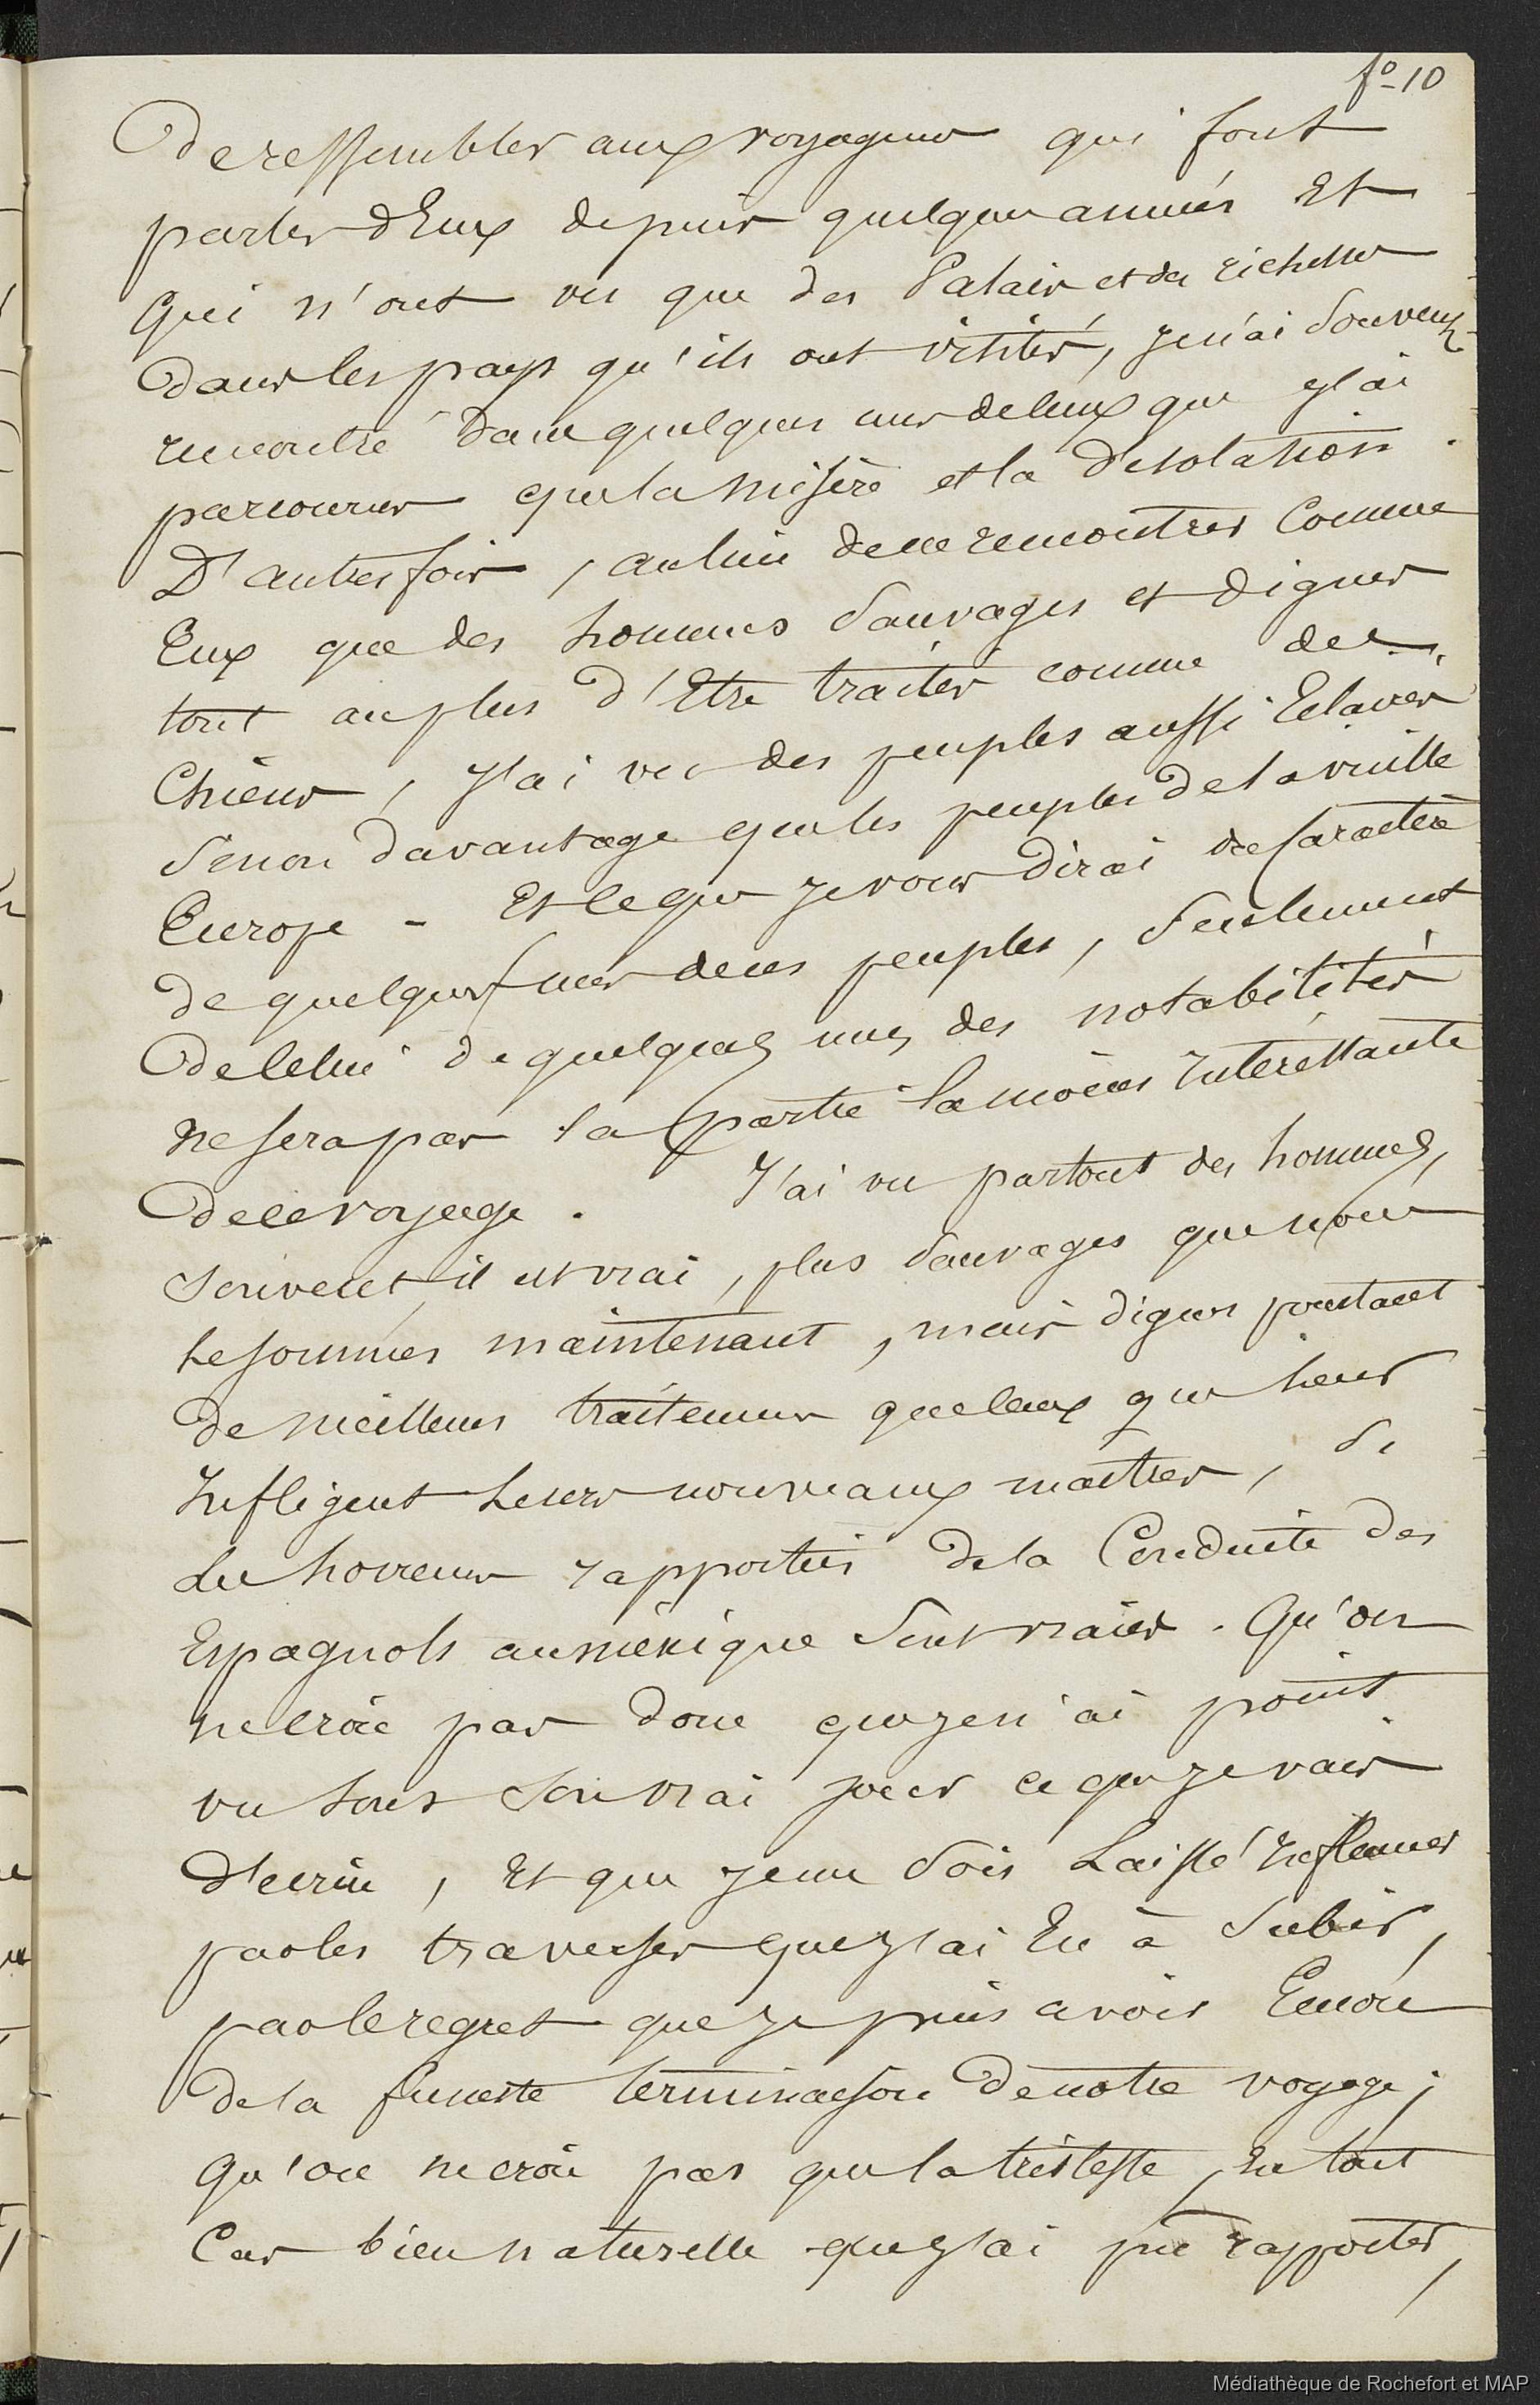 fo 10
De ressembler aux voyageurs qui font
parler d'Eux depuis quelques années Et
Qui n'ont vu que des Palais et des richesses
Dans les pays qu'ils ont visités, je n'ai Souvent
rencontré Dans quelques uns de ceux que j'ai
parcourus que la Misère et la Désolation.
D'autres fois, au lieu de ne rencontrer Comme
Eux que des hommes Sauvages et Dignes
tout au plus d'Etre traités comme des
Chiens, J'ai vu des peuples aussi Eclairés
Sinon Davantage que les peuples De la vieille
Europe - Et ce que je vous Dirai du Caractère
De quelques uns de ces peuples, Seulement
De celui de quelques uns des notabilités
Ne sera pas la partie la moins Intéressante
De ce voyage. J'ai vu partout des hommes,
Souvent, il est vrai, plus Sauvages que nous
Le sommes maintenant, mais dignes pourtant
De meilleurs traitemens que ceux que Leur
Infligent Leurs nouveaux maîtres, Si
Les horreurs rapportées De la Conduite Des
Espagnols au Méxique Sont vraies. Qu'on
Ne croie pas Donc que je n'ai point
vu Sous Son vrai jour ce que je vais
D'écrire, Et que je me Sois Laissé Influencer
par les traverses que j'ai Eu à Subir,
par le regret que je puis avoir Encore
De la funeste terminaison De notre voyage;
Qu'on ne croie pas que la tristesse, En tout
Cas bien naturelle que j'ai pu rapporter,
Médiathèque de Rochefort et MAP